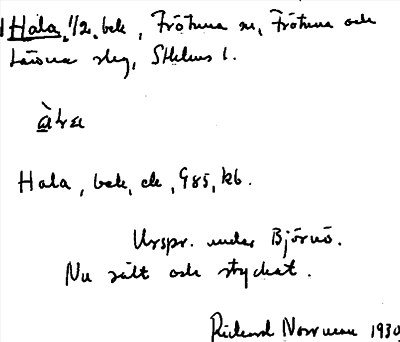 Hala, 1/2, bek, Frötuna sn, Frötuna och
Länna slg, Sthlms l.
Hala, bek, ek, G85, kb.
Urspr. under Björnö.
Nu sålt och styckat.
Rickard Norrman 1930